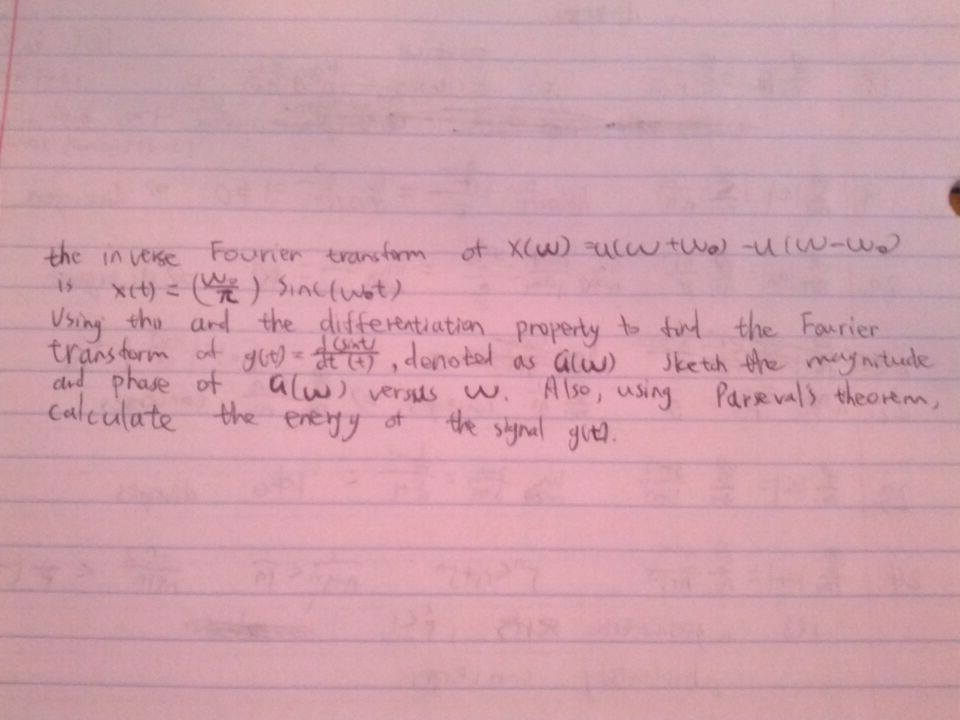 the inverse Fourier transform of X(ω) = u(ω+ω₀) - u(ω-ω₀)
is x(t) = (ω₀/π) sinc(ω₀t)
Using this and the differentiation property to find the Fourier
transform of g(t) = d/dt (sint/(t)), denoted as G(ω) Sketch the magnitude
and phase of G(ω) versus ω. Also, using Parseval's theorem,
calculate the energy of the signal g(t).